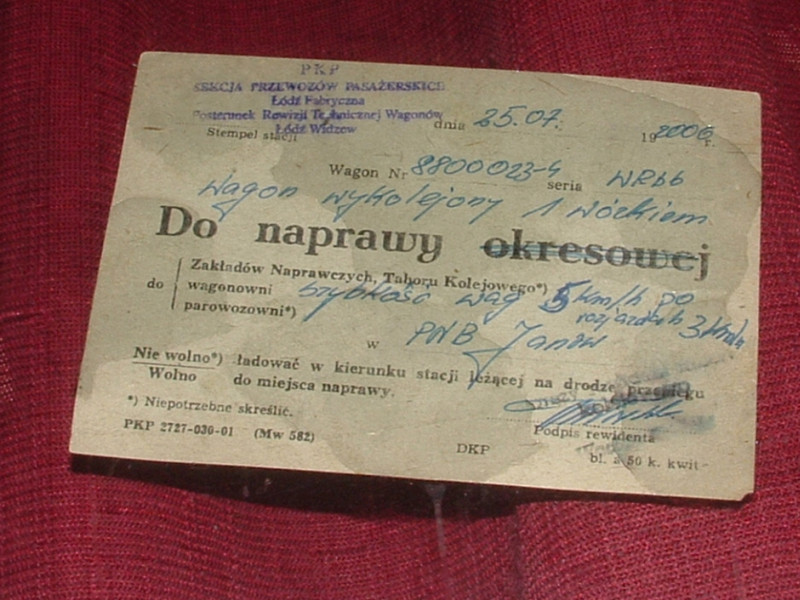 PKP
SEKCJA PRZEWOZÓW PASAŻERSKICH
Łódź Fabryczna
Posterunek Rewizji Technicznej Wagonów
Łódź Widzew
Stempel stacji
dnia 25.07. 192000 r.
Wagon Nr 8800023-4 seria WRbb
Wagon wykolejony 1 wózkiem
Do naprawy okresowej
Zakładów Naprawczych, Taboru Kolejowego*)
do wagonowni szybkość wag 5 km/h po
parowozowni*) rozjazdach 3 km/h
w PWB Janów
Nie wolno*) ładować w kierunku stacji leżącej na drodze przebiegu
Wolno do miejsca naprawy.
*) Niepotrzebne skreślić.
Podpis rewidenta
PKP 2727-030-01 (Mw 582)
DKP
bl. a 50 k. kwit-